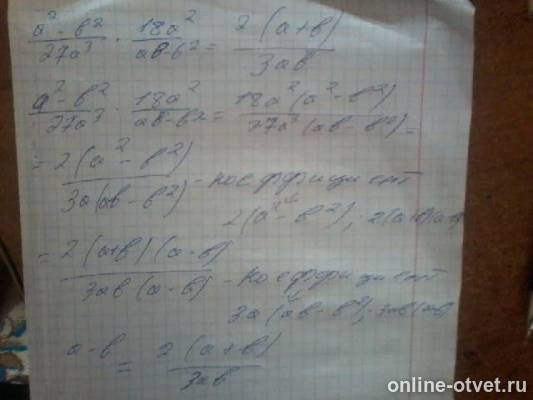 a² - b² / 27a³ · 18a² / ab - b² = 2(a+b) / 3ab
a² - b² / 27a³ · 18a² / ab - b² = 18a²(a² - b²) / 27a³(ab - b²) =
= 2(a² - b²) / 3a(ab - b²) - коеффициент
2(a² - b²); 2(a+b)(a-b)
= 2(a+b)(a-b) / 3ab(a-b) - коеффициент
3a(ab - b²); 3ab
a-b = 2(a+b) / 3ab
online-otvet.ru